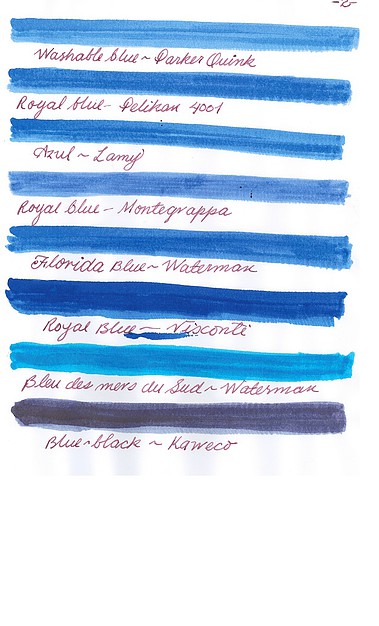 Washable blue ~ Parker Quink
Royal blue - Pelikan 4001
Azul ~ Lamy
Royal blue - Montegrappa
Florida Blue ~ Waterman
Royal Blue — Visconti
Bleu des mers du Sud ~ Waterman
Blue-black ~ Kaweco